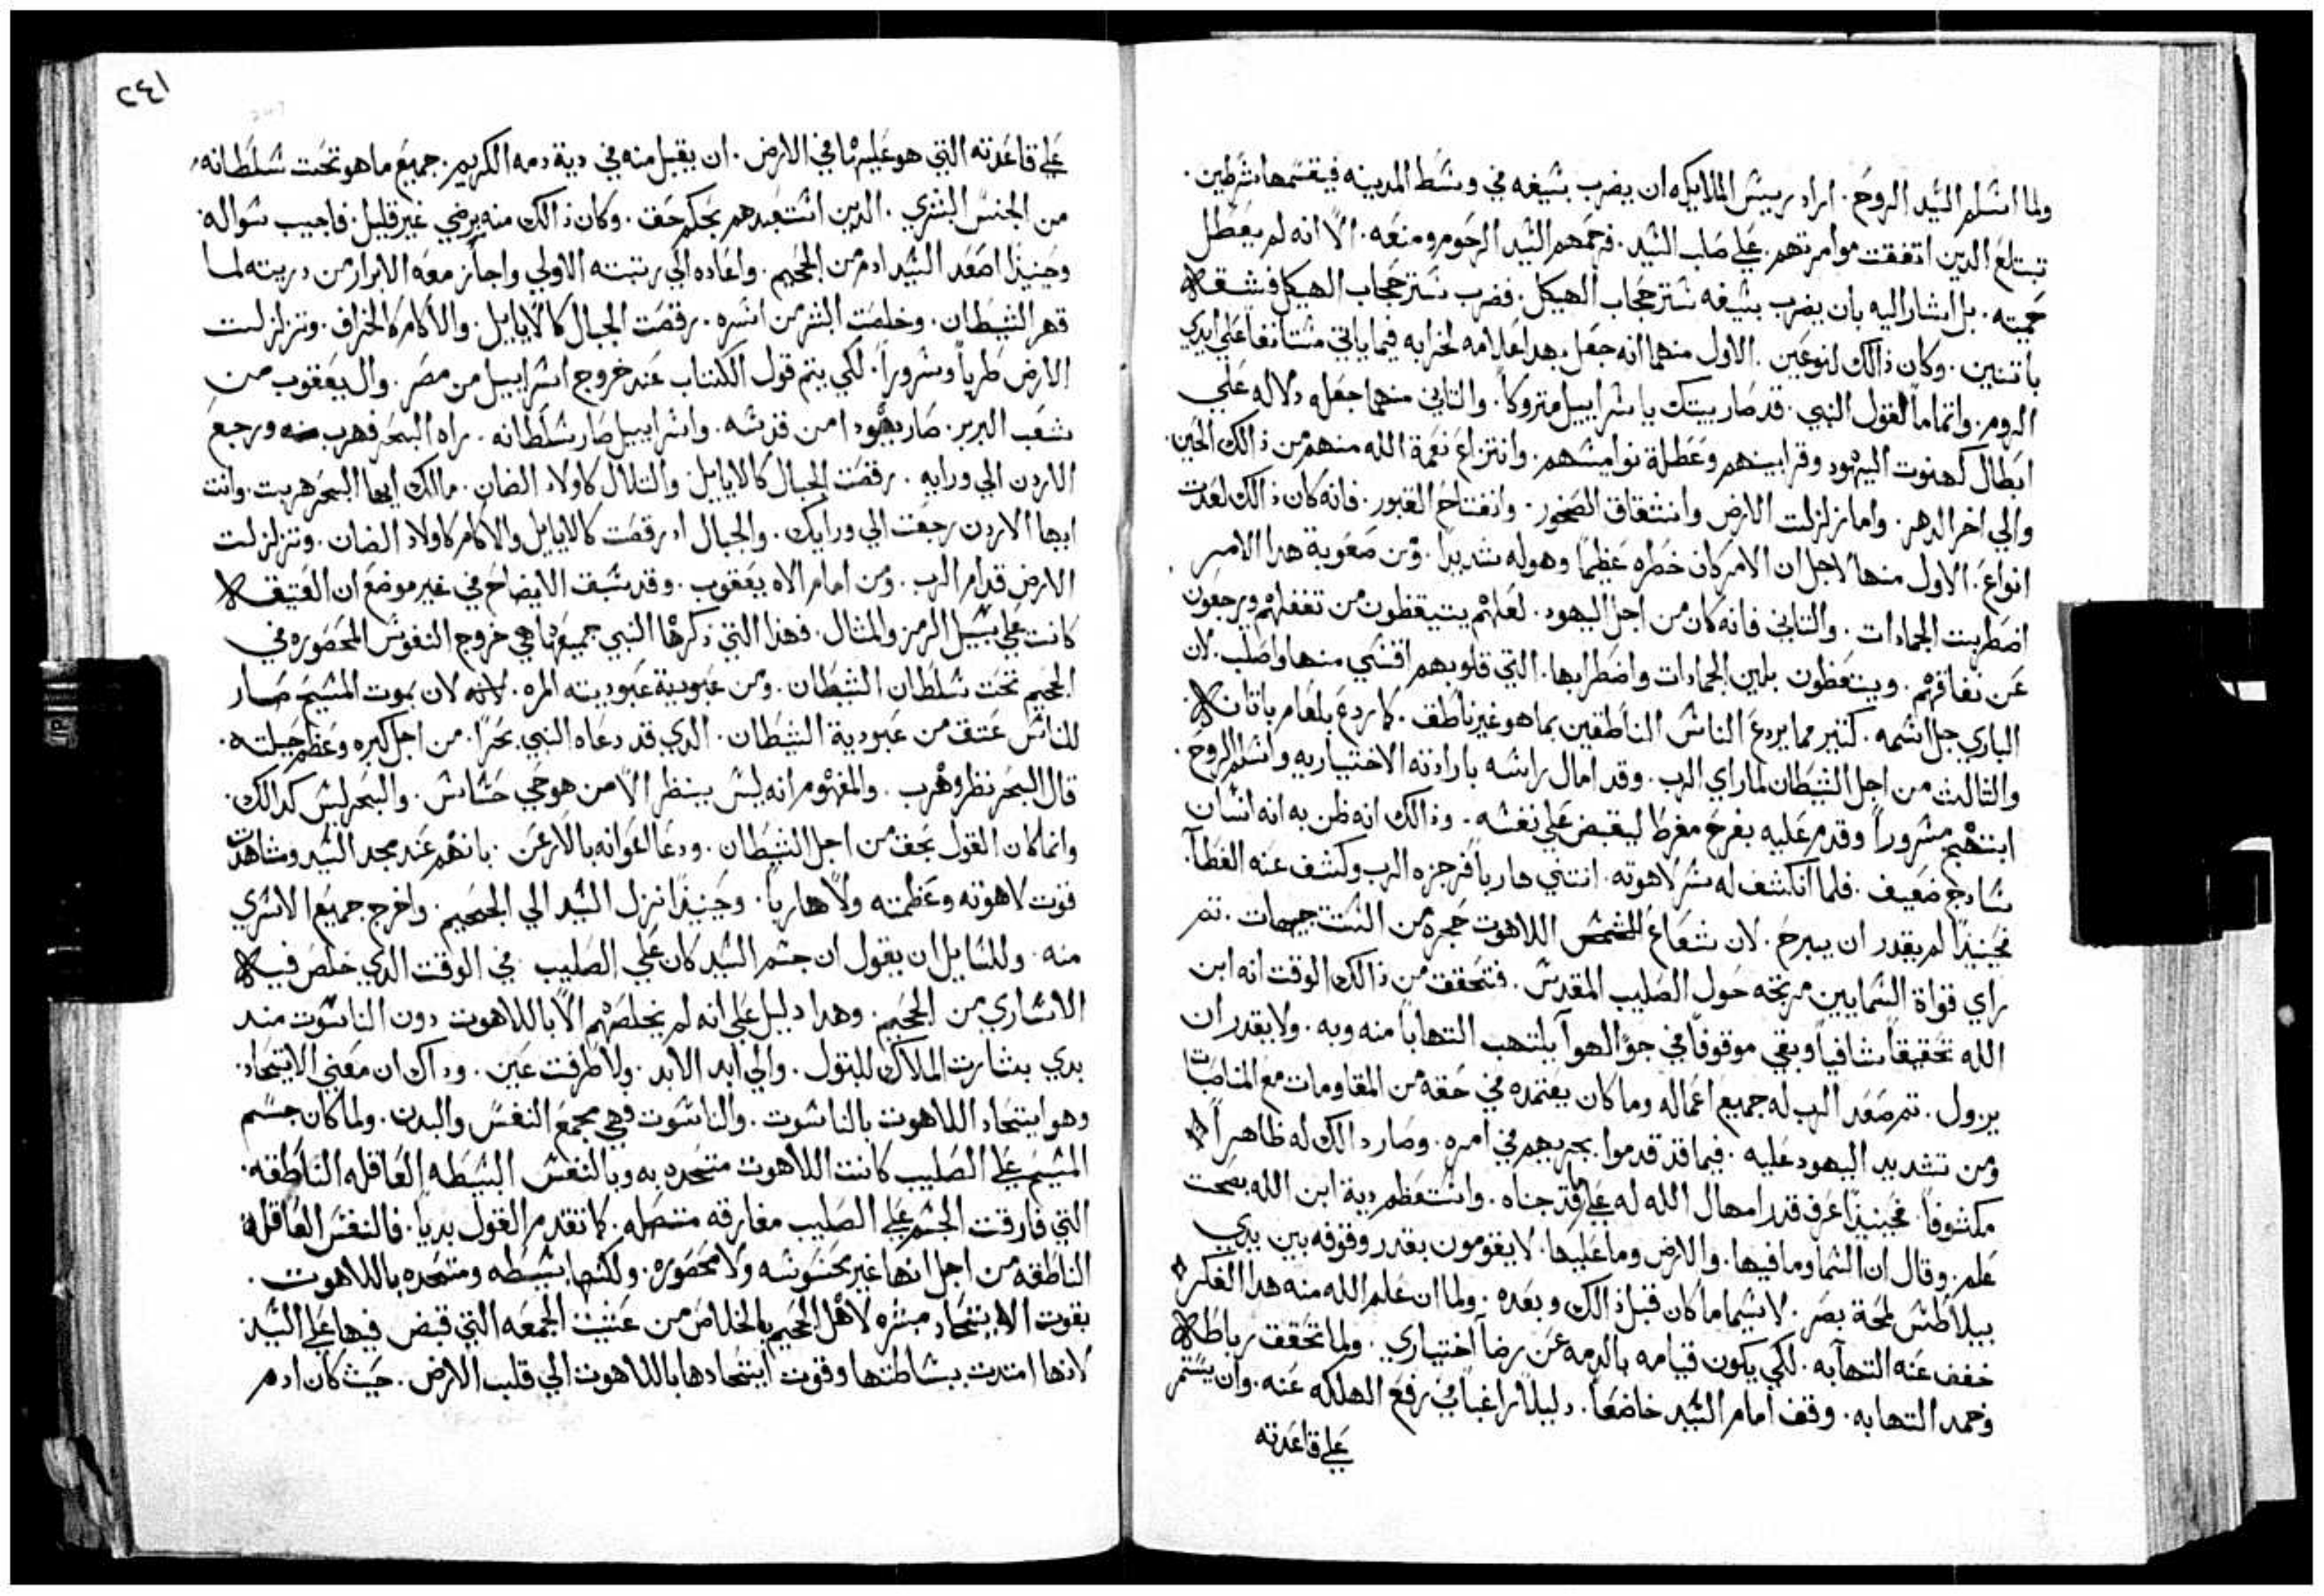 ولما اسلم السيد الروح . اراد رييس الملايكه ان يضرب بسيفه في وسط المدينه فيقسمها شطرين .
تبتلع الدين اتفقت موامرتهم . علي صلب السيد . فرحمهم السيد الرحوم ومنعه . الا انه لم يعطل
حميته . بل اشار اليه بان يضرب بسيفه ستر حجاب الهيكل . فضرب ستر حجاب الهيكل فشقه
باتنين . وكان ذالك لنوعين . الاول منهما انه جعل هدا علامه لخرابه فيما ياتي مستانفا علي ايدي
الروم . واتماماً لقول النبي . قد صار بيتك يا اسراييل متروكاً . والتاني منهما جعله دلاله علي
ابطال كهنوت اليهود وقرابينهم وعطلة نواميسهم . وانتزاع نعمة الله منهم من ذالك الحين .
والي اخر الدهر . واما زلزلت الارض وانشقاق الصخور . وانفتاح القبور . فانه كان ذالك لعدت
انواع . الاول منها لاجل ان الامر كان خطره عظيماً وهوله شديداً . ومن صعوبة هدا الامر
اضطربت الجمادات . والتاني فانه كان من اجل اليهود . لعلهم يتيقظون من تغفلهم ويرجعون
عن نفاقهم . ويتعظون بلين الجمادات واضطرابها . التي قلوبهم اقسي منها واصلب . لان
الباري جل اسمه . كتير مما يردع الناس الناطقين بما هو غير ناطق . كما ردع بلعام باتانه .
والتالت من اجل الشيطان لما راي الرب . وقد امال راسه بارادته الاختياريه واسلم الروح .
ابتهج مسروراً وقدم عليه بفرح مفرط ليقبض علي نفسه . وذالك انه ظن به انه انسان
سادج ضعيف . فلما انكشف له سر لاهوته . انتني هارباً فزجره الرب وكشف عنه الغطآ .
فحينيذاً لم يقدر ان يبرح . لان شعاع اللاهوت حجره من الست جيهات . تم
راي قواة السماييين مرتجه حول الصليب المقدس . فتحقق من ذالك الوقت انه ابن
الله تحقيقاً شافياً وبقي موقوفاً في جو الهوآ يلتهب التهاباً منه وبه . ولا يقدر ان
يزول . تم صعد الرب له جميع اعماله وما كان يعتمده في حقه من المقاومات مع المناصبات
ومن تشديد اليهود عليه . فيما قد قدموا بحريهم في امره . وصار دالك له ظاهراً
مكشوفاً . فحينيذاً عرف قدر امهال الله له علي ما قد جناه . واستعظم دية ابن الله بصحت
علم . وقال ان السما وما فيها . والارض وما عليها . لا يقومون بقدر وقوفه بين يدي
بيلاطس لمحة بصر . لا سيما ما كان قبل ذالك وبعده . ولما ان علم الله منه هدا الفكر
خفف عنه التهابه . لكي يكون قيامه بالدمه عن رضاً اختياري . ولما تحقق رباطه
وخمد التهابه . وقف امام السيد خاضعاً . دليلاً راغباً في رفع الهلكه عنه . وان يستمر
علي قاعدته
٢٤١
علي قاعدته التي هو عليها في الارض . ان يقبل منه في دية دمه الكريم . جميع ما هو تحت سلطانه
من الجنس البشري . الدين استعبدهم بحكم حق . وكان ذالك منه برضي غير قليل . فاجيب سواله
وحينيذاً اصعد السيد ادم من الجحيم . واعاده الي رتبته الاولي واجاز معه الابرار من دريته لما
قهر الشيطان . وخلصت البشر من اسره . رقصت الجبال كالايايل . والاكام كالخراف . وتزلزلت
الارض طرباً وسروراً . لكي يتم قول الكتاب عند خروج اسراييل من مصر . وال يعقوب من
شعب البربر . صار يهودا من قدسه . واسراييل صار سلطانه . راه البحر فهرب ورجع
الاردن الي ورايه . رقصت الجبال كالايايل والتلال كاولاد الضان . مالك ايها البحر هربت . وانت
ايها الاردن رجعت الي ورايك . والجبال اد رقصت كالايايل والاكام كاولاد الضان . وتزلزلت
الارض قدام الرب . ومن امام الاه يعقوب . وقد سبق الايضاح في غير موضع ان العتيقه
كانت علي سبيل الرمز والمثال . فهذا التي ذكرها النبي جميعها هي خروج النفوس المحصوره في
الجحيم تحت سلطان الشيطان . ومن عبودية عبوديته المره . لان بموت المسيح صار
للناس عتق من عبودية الشيطان . الدي قد دعاه النبي بحراً . من اجل كبره وعظم حيلته .
قال البحر نظر وهرب . والمفهوم انه ليس ينظر الا من هو حي حساس . والبحر ليس كدالك .
وانما كان القول بحق من اجل الشيطان . ودعا اعوانه بالارعن . بانهم عند مجد السيد ومشاهدت
قوت لاهوته وعظمته ولا هارباً . وحينيذاً نزل السيد الي الجحيم . واخرج جميع الاسري
منه . وللسايل ان يقول ان جسم السيد كان علي الصليب في الوقت الدي خلص فيه
الاساري من الجحيم . وهدا دليل علي انه لم يخلصهم الا باللاهوت دون الناسوت مند
بدي بشارت الملاك للبتول . والي ابد الابد . ولا طرفت عين . وداك ان معني الايتحاد .
وهو ايتحاد اللاهوت بالناسوت . والناسوت فهي مجمع النفس والبدن . ولما كان جسم
المسيح علي الصليب كانت اللاهوت متحده به وبالنفس البسيطه العاقله الناطقه .
التي فارقت الجسم علي الصليب مفارقه متصله . كما تقدم القول بدياً . فالنفس العاقله
الناطقه من اجل انها غير محسوسه ولا محصوره . ولكنها بسيطه ومتحده باللاهوت .
بقوت الايتحاد مبشره لاهل الجحيم بالخلاص من عشيت الجمعه التي قبض فيها علي السيد
لانها امتدت ببساطتها وقوت ايتحادها باللاهوت الي قلب الارض . حيث كان ادم